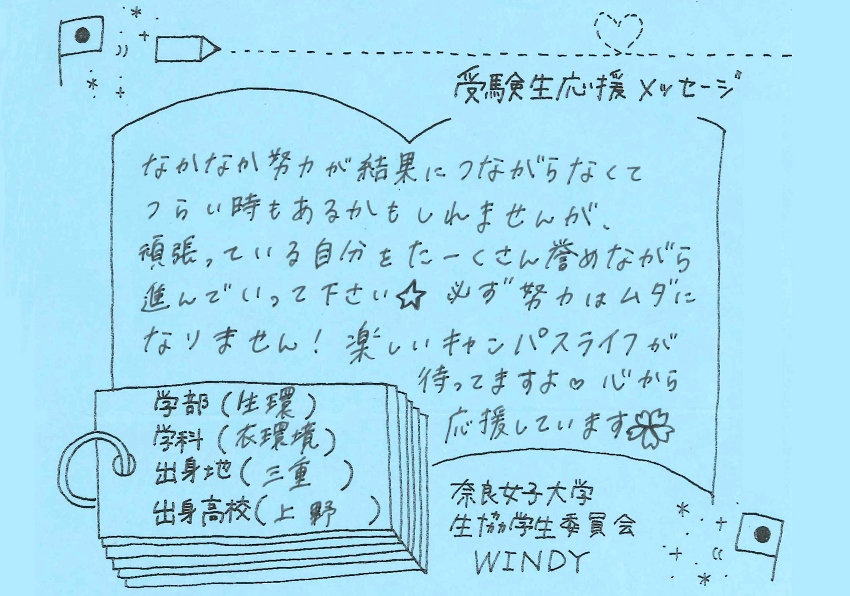 受験生応援メッセージ
なかなか努力が結果につながらなくて
つらい時もあるかもしれませんが、
頑張っている自分をたーくさん誉めながら
進んでいって下さい☆ 必ず努力はムダに
なりません！楽しいキャンパスライフが
待ってますよ♡ 心から
応援しています
学部（生環）
学科（衣環境）
出身地（三重）
出身高校（上野）
奈良女子大学
生協学生委員会
WINDY